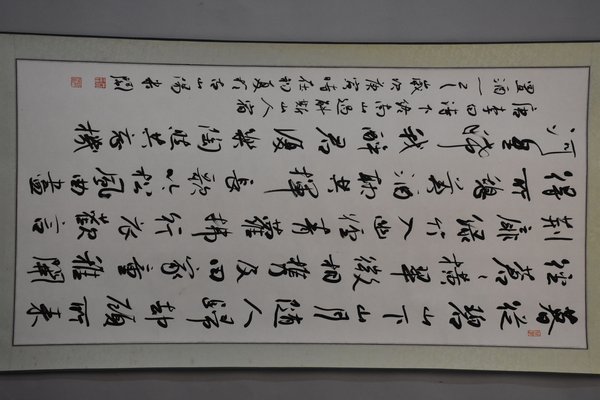 暮從碧山下山月隨人歸却顧所來
徑蒼蒼橫翠微相攜及田家童稚開
荊扉綠竹入幽徑青蘿拂行衣歡言
得所憩美酒聊共揮長歌吟松風曲盡
河星稀我醉君復樂陶然共忘機
唐李白詩下終南山過斛斯山人宿
置酒一首歲次庚寅時在初夏於古山陽